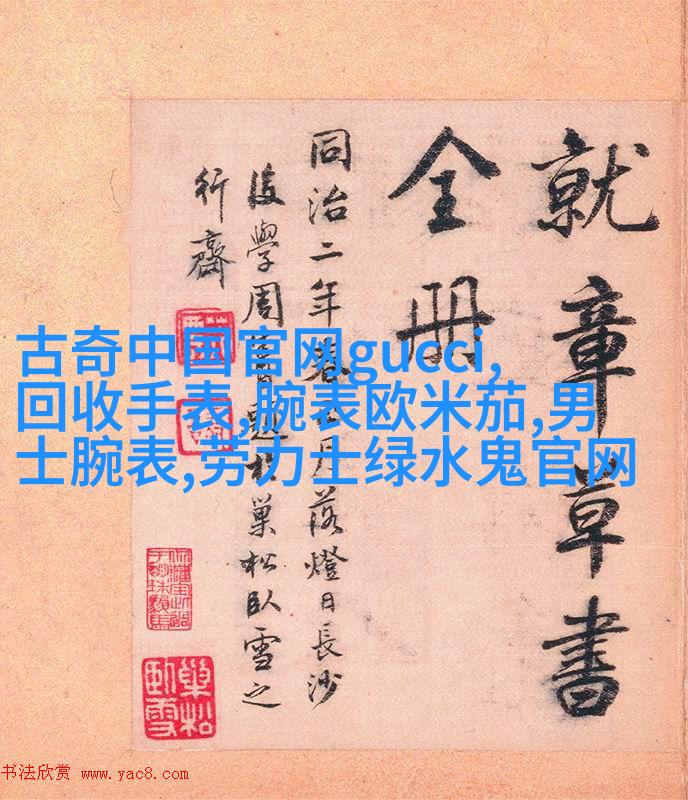 就章草書
全冊
同治二年春正月落燈日長沙
後學周題於巢松臥雪之
行齋
古奇中国官网gucci,
回收手表,腕表欧米茄,男
士腕表,劳力士绿水鬼官网
巢松
臥雪
书法欣赏 www.yac8.com